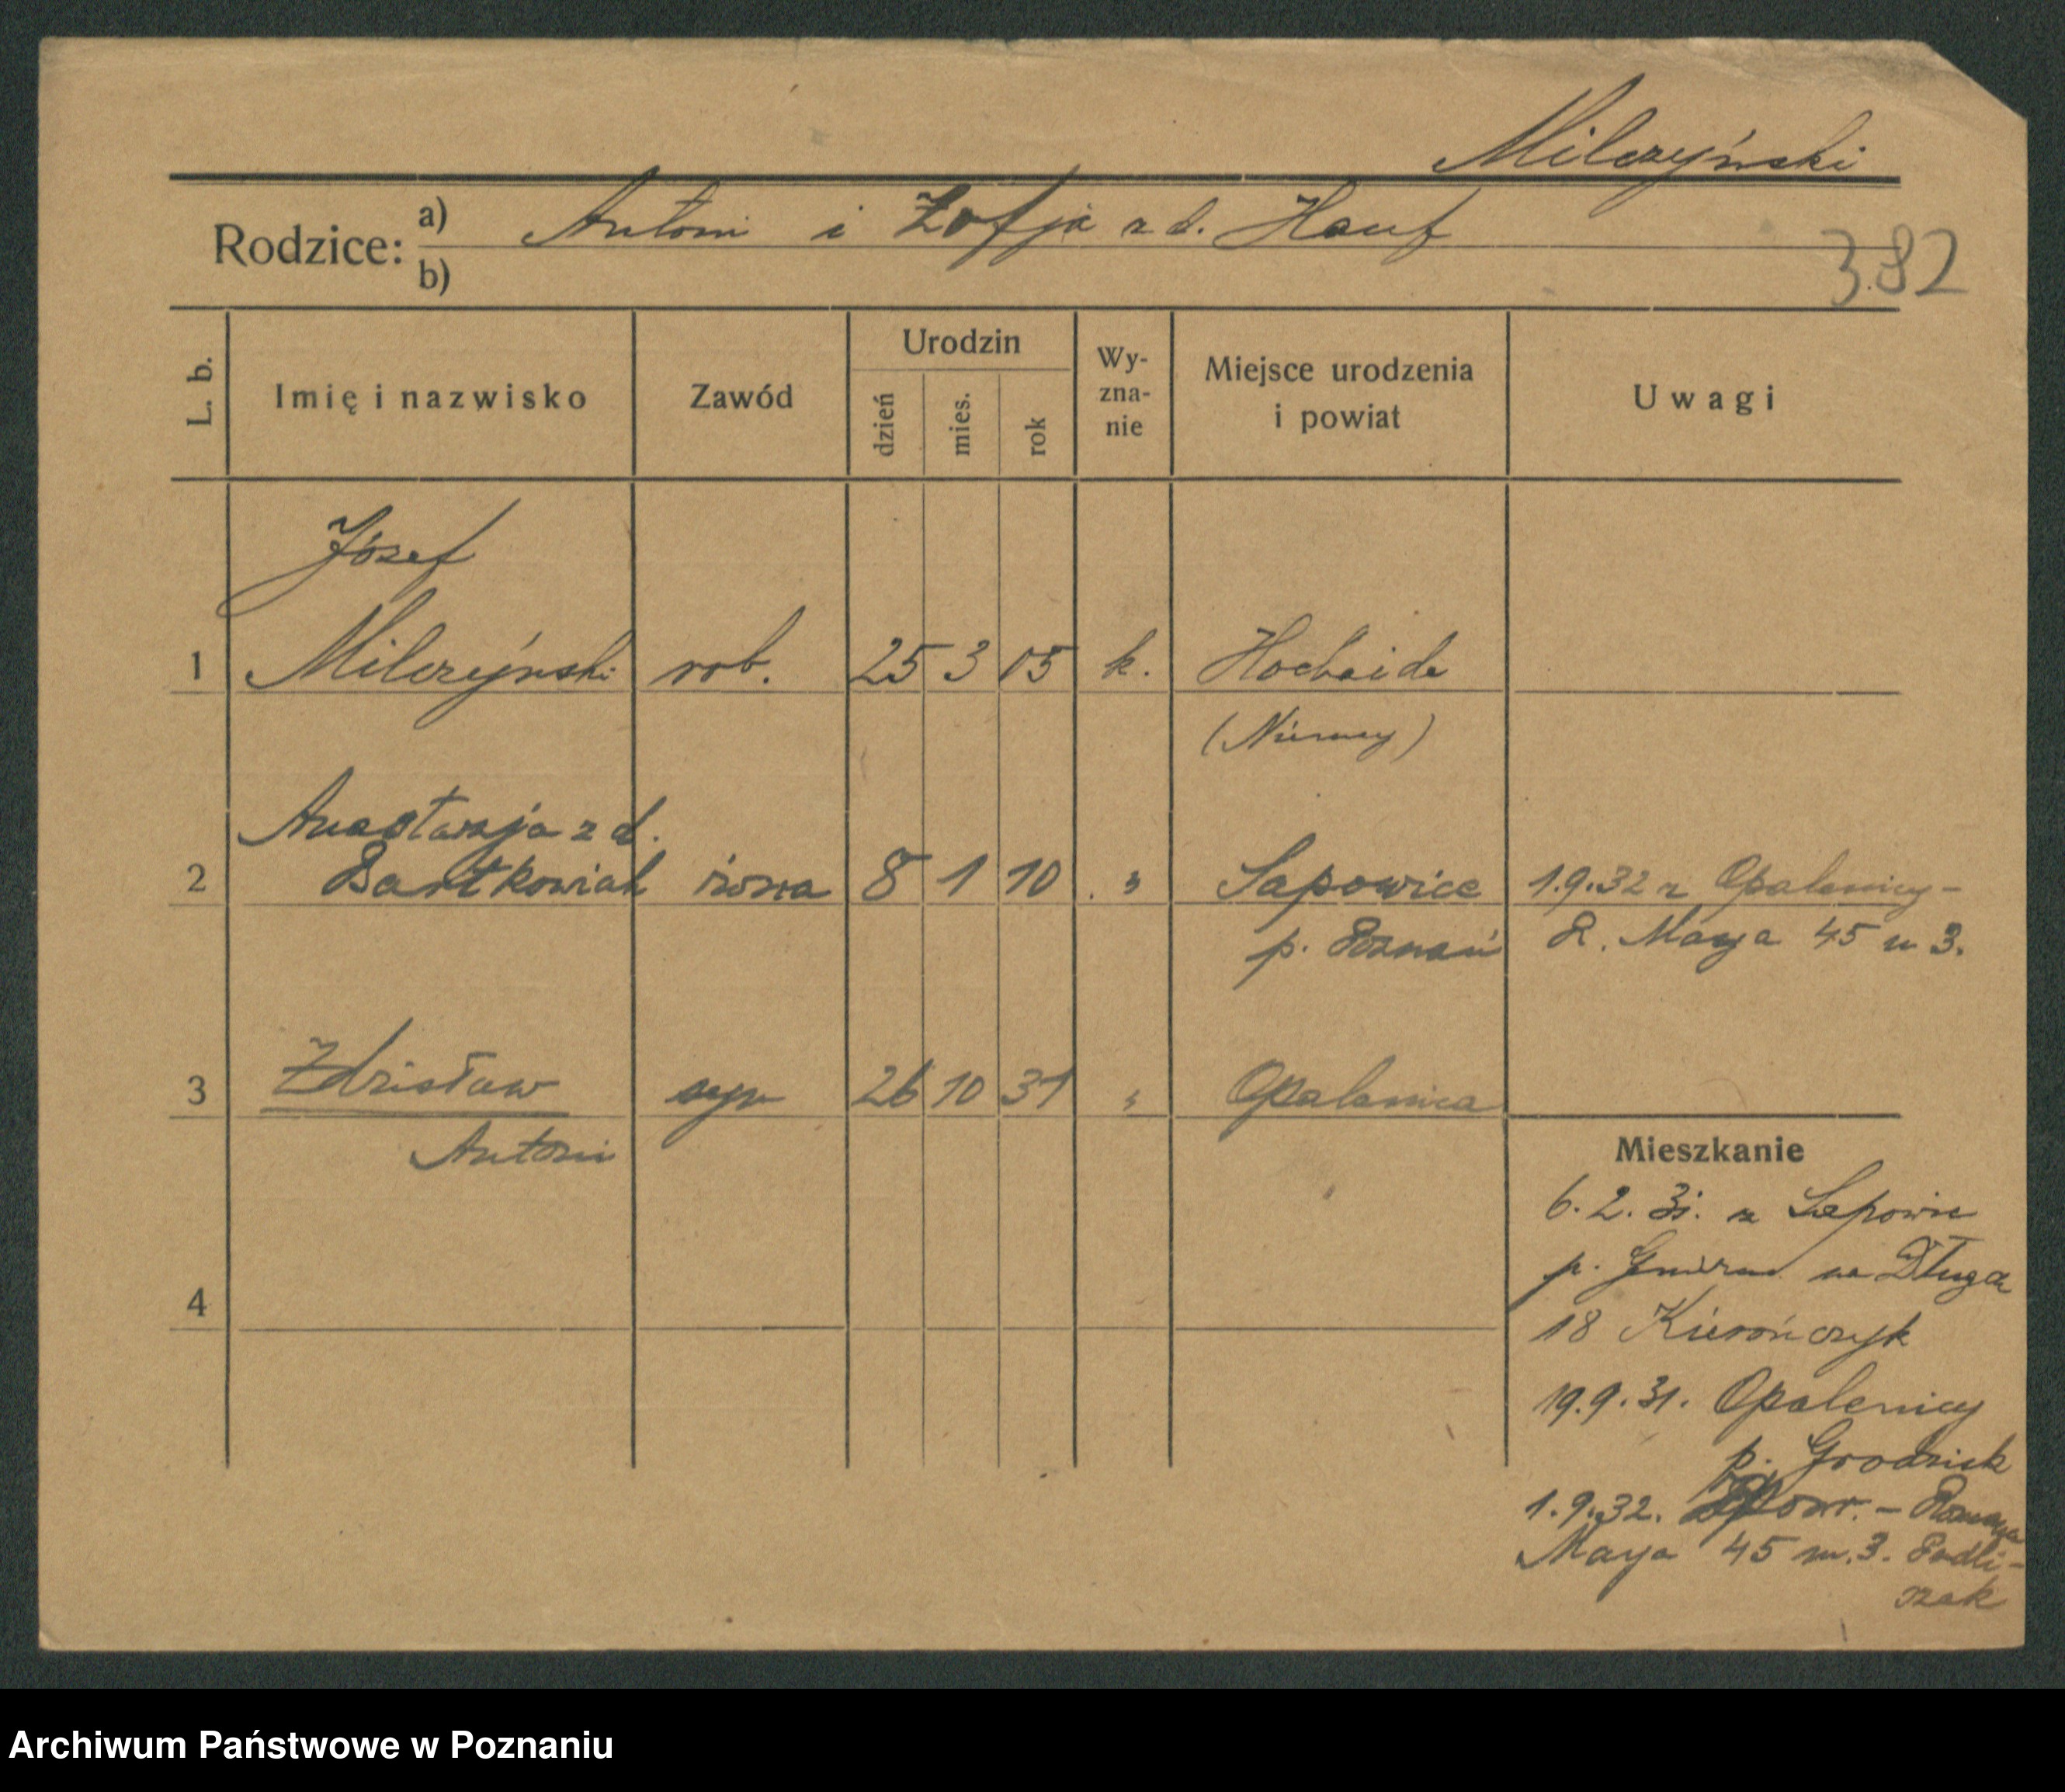 Milczyński
Rodzice: a) Antoni i Zofja z d. Hauf
b)
382
L. b. Imię i nazwisko Zawód Urodzin dzień mies. rok Wy-zna-nie Miejsce urodzenia i powiat Uwagi
Józef
1 Milczyński rob. 25 3 05 k. Hocheide
(Niemcy)
Anastazja z d.
2 Bartkowiak żona 8 1 10 " Sapowice 1.9.32 z Opalenicy -
p. Poznań R. Maya 45 m 3.
3 Zdzisław syn 26 10 31 " Opalenica
Antoni
Mieszkanie
6.2.31. z Sapowic
p. na Długa
4
18 Kierończyk
19.9.31. Opalenicy
p. Grodzisk
1.9.32. powr. -
Maya 45 m. 3. Podli-
szak
Archiwum Państwowe w Poznaniu